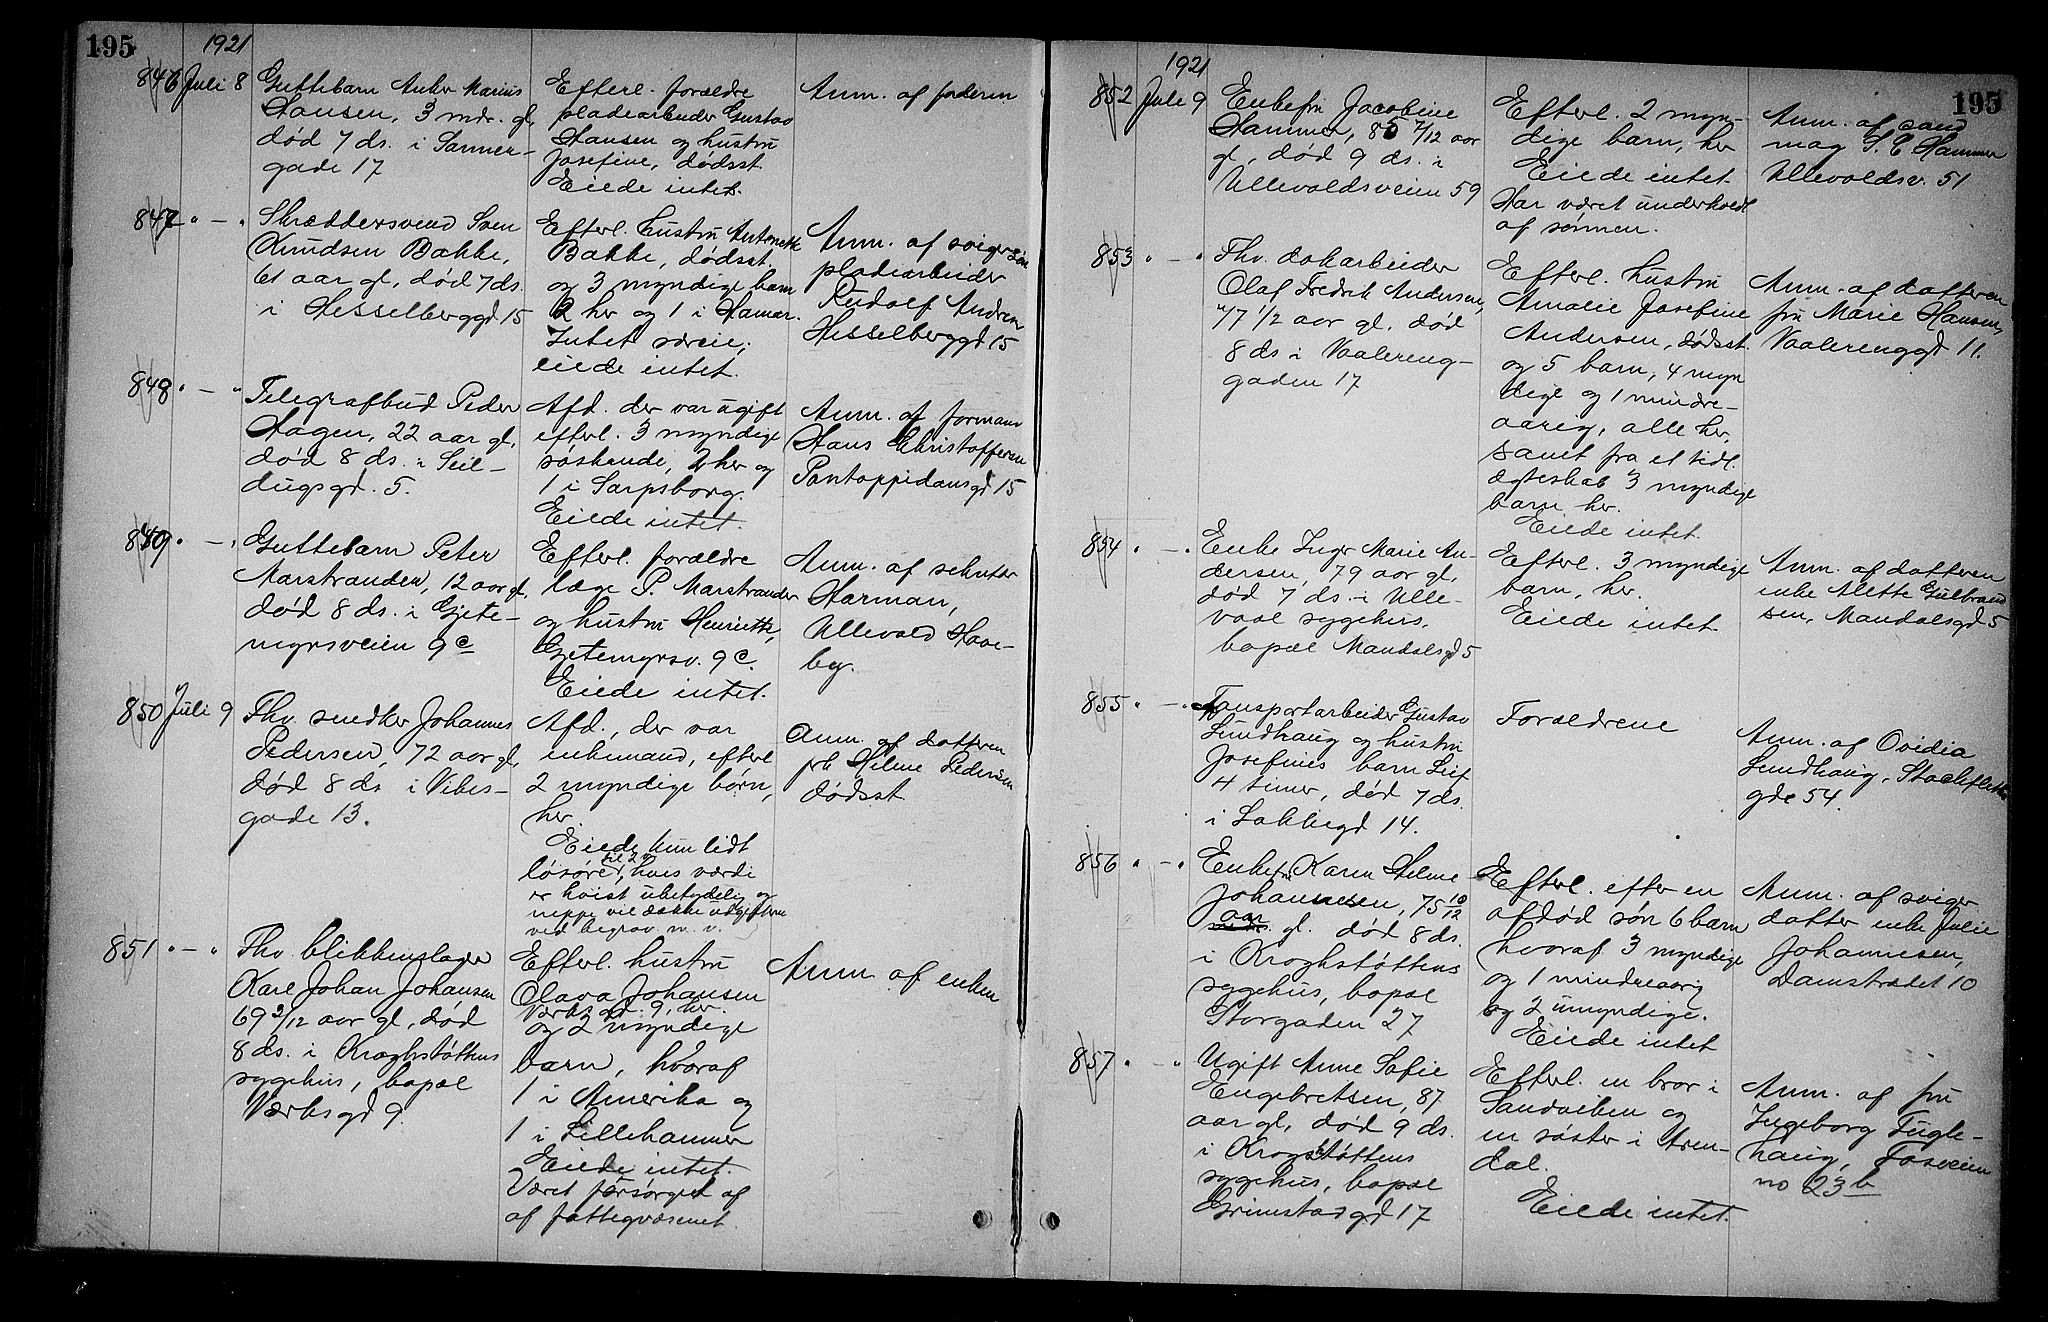 195
1921
846 Juli 8
Guttebarn Anker Marius
Hansen, 3 mdr. gl,
død 7 ds. i Sanner-
gade 17
Efterl. forældre
pladearbeider Gustav
Hansen og hustru
Josefine, dødsst.
Eiede intet.
Anm. af faderen
847 " — "
Skræddersvend Sven
Knudsen Bakke,
61 aar gl, død 7 ds.
i Hesselberggd 15
Efterl. hustru Antonette
Bakke, dødsst.
og 3 myndige barn
2 her og 1 i Hamar.
Intet særeie,
eiede intet.
Anm. af svigersøn
pladearbeider
Rudolf Andersen
Hesselberggd 15
848 " — "
Telegrafbud Peder
Hagen, 22 aar gl,
død 8 ds. i Seil-
dugsgd. 5.
Afd. der var ugift
efterl. 3 myndige
søskende, 2 her og
1 i Sarpsborg.
Eiede intet.
Anm. af formand
Hans Christoffersen
Pontoppidansgd 15
849 " — "
Guttebarn Peter
Marstrander, 12 aar gl,
død 8 ds. i Gjete-
myrsveien 9c
Efterl. forældre
læge P. Marstrander
og hustru Henriette,
Gjetemyrsv. 9c.
Eiede intet.
Anm. af sekretær
Harman,
Ullevold Have-
by.
850 Juli 9
Fhv. snedker Johannes
Pedersen, 72 aar gl,
død 8 ds i Vibes-
gade 13.
Afd., der var
enkemand, efterl
2 myndige børn,
her.
Eiede kun lidt
løsøre, hvis værdi
er høist ubetydelig og
neppe vil dække udgifterne
ved begrav. m. v.
Anm. af datteren
frk Helene Pedersen
dødsst.
851 " — "
Fhv. blikkenslager
Karl Johan Johansen
69 2/12 aar gl, død
8 ds. i Kroghstøttens
sygehus, bopæl
Værksgd 9.
Efterl. hustru
Olava Johansen
Værksgd. 9, her.
og 2 myndige
barn, hvoraf
1 i Amerika og
1 i Lillehammer
Eiede intet.
Været forsørget af
af fattigvæsenet.
Anm. af enken
195
1921
852 Juli 9
Enkefru Jacobine
Hammer, 85 7/12 aar
gl, død 9 ds. i
Ullevoldsveien 59
Efterl. 2 myn-
dige barn, her
Eiede intet
Har været underholdt
af sønnen.
Anm. af cand
mag S. C Hammer
Ullevoldsv. 51
853 " — "
Fhv. dokarbeider
Olaf Fredrik Andersen,
77 1/2 aar gl. død
8 ds i Vaalereng-
gaden 17
Efterl. hustru
Amalie Josefine
Andersen, dødsst.
og 5 barn, 4 myn
dige og 1 mindre-
aarig, alle her,
samt fra et tidl.
ægteskab 3 myndige
barn, her.
Eiede intet.
Anm. af datteren
fru Marie Hansen,
Vaalerenggd 11.
854 " — "
Enke Inger Marie An-
dersen, 79 aar gl,
død 7 ds. i Ulle-
vaal sygehus,
bopæl Mandalsgd 5
Efterl. 3 myndige
barn, her.
Eiede intet
Anm. af datteren
enke Alette Gulbrand
sen, Mandalsgd 5
855 " — "
Transportarbeider Gustav
Lundhaug og hustru
Josefines barn Leif
4 timer, død 7 ds.
i Lakkegd 14.
Forældrene
Anm. af Ovidia
Lundhaug, Stockfleths
gde 54.
856 " — "
Enkefr. Karen Helene
Johannesen, 75 10/12
aar gl. død 8 ds.
i Kroghstøttens
sygehus, bopæl
Storgaden 27
Efterl. efter en
afdød søn 6 barn
hvoraf 3 myndige
og 1 mindreaarig
og 2 umyndige.
Eiede intet
Anm. af sviger
datter enke Julie
Johannesen,
Damstrædet 10
857 " — "
Ugift Anne Sofie
Engebretsen, 87
aar gl, død 9 ds.
i Krogstøttens
sygehus, bopæl
Grimstadgd 17
Efterl. en bror i
Sandviken og
en søster i Aren-
dal.
Eiede intet.
Anm. af fru
Ingeborg Fugle-
haug,
no 23 b